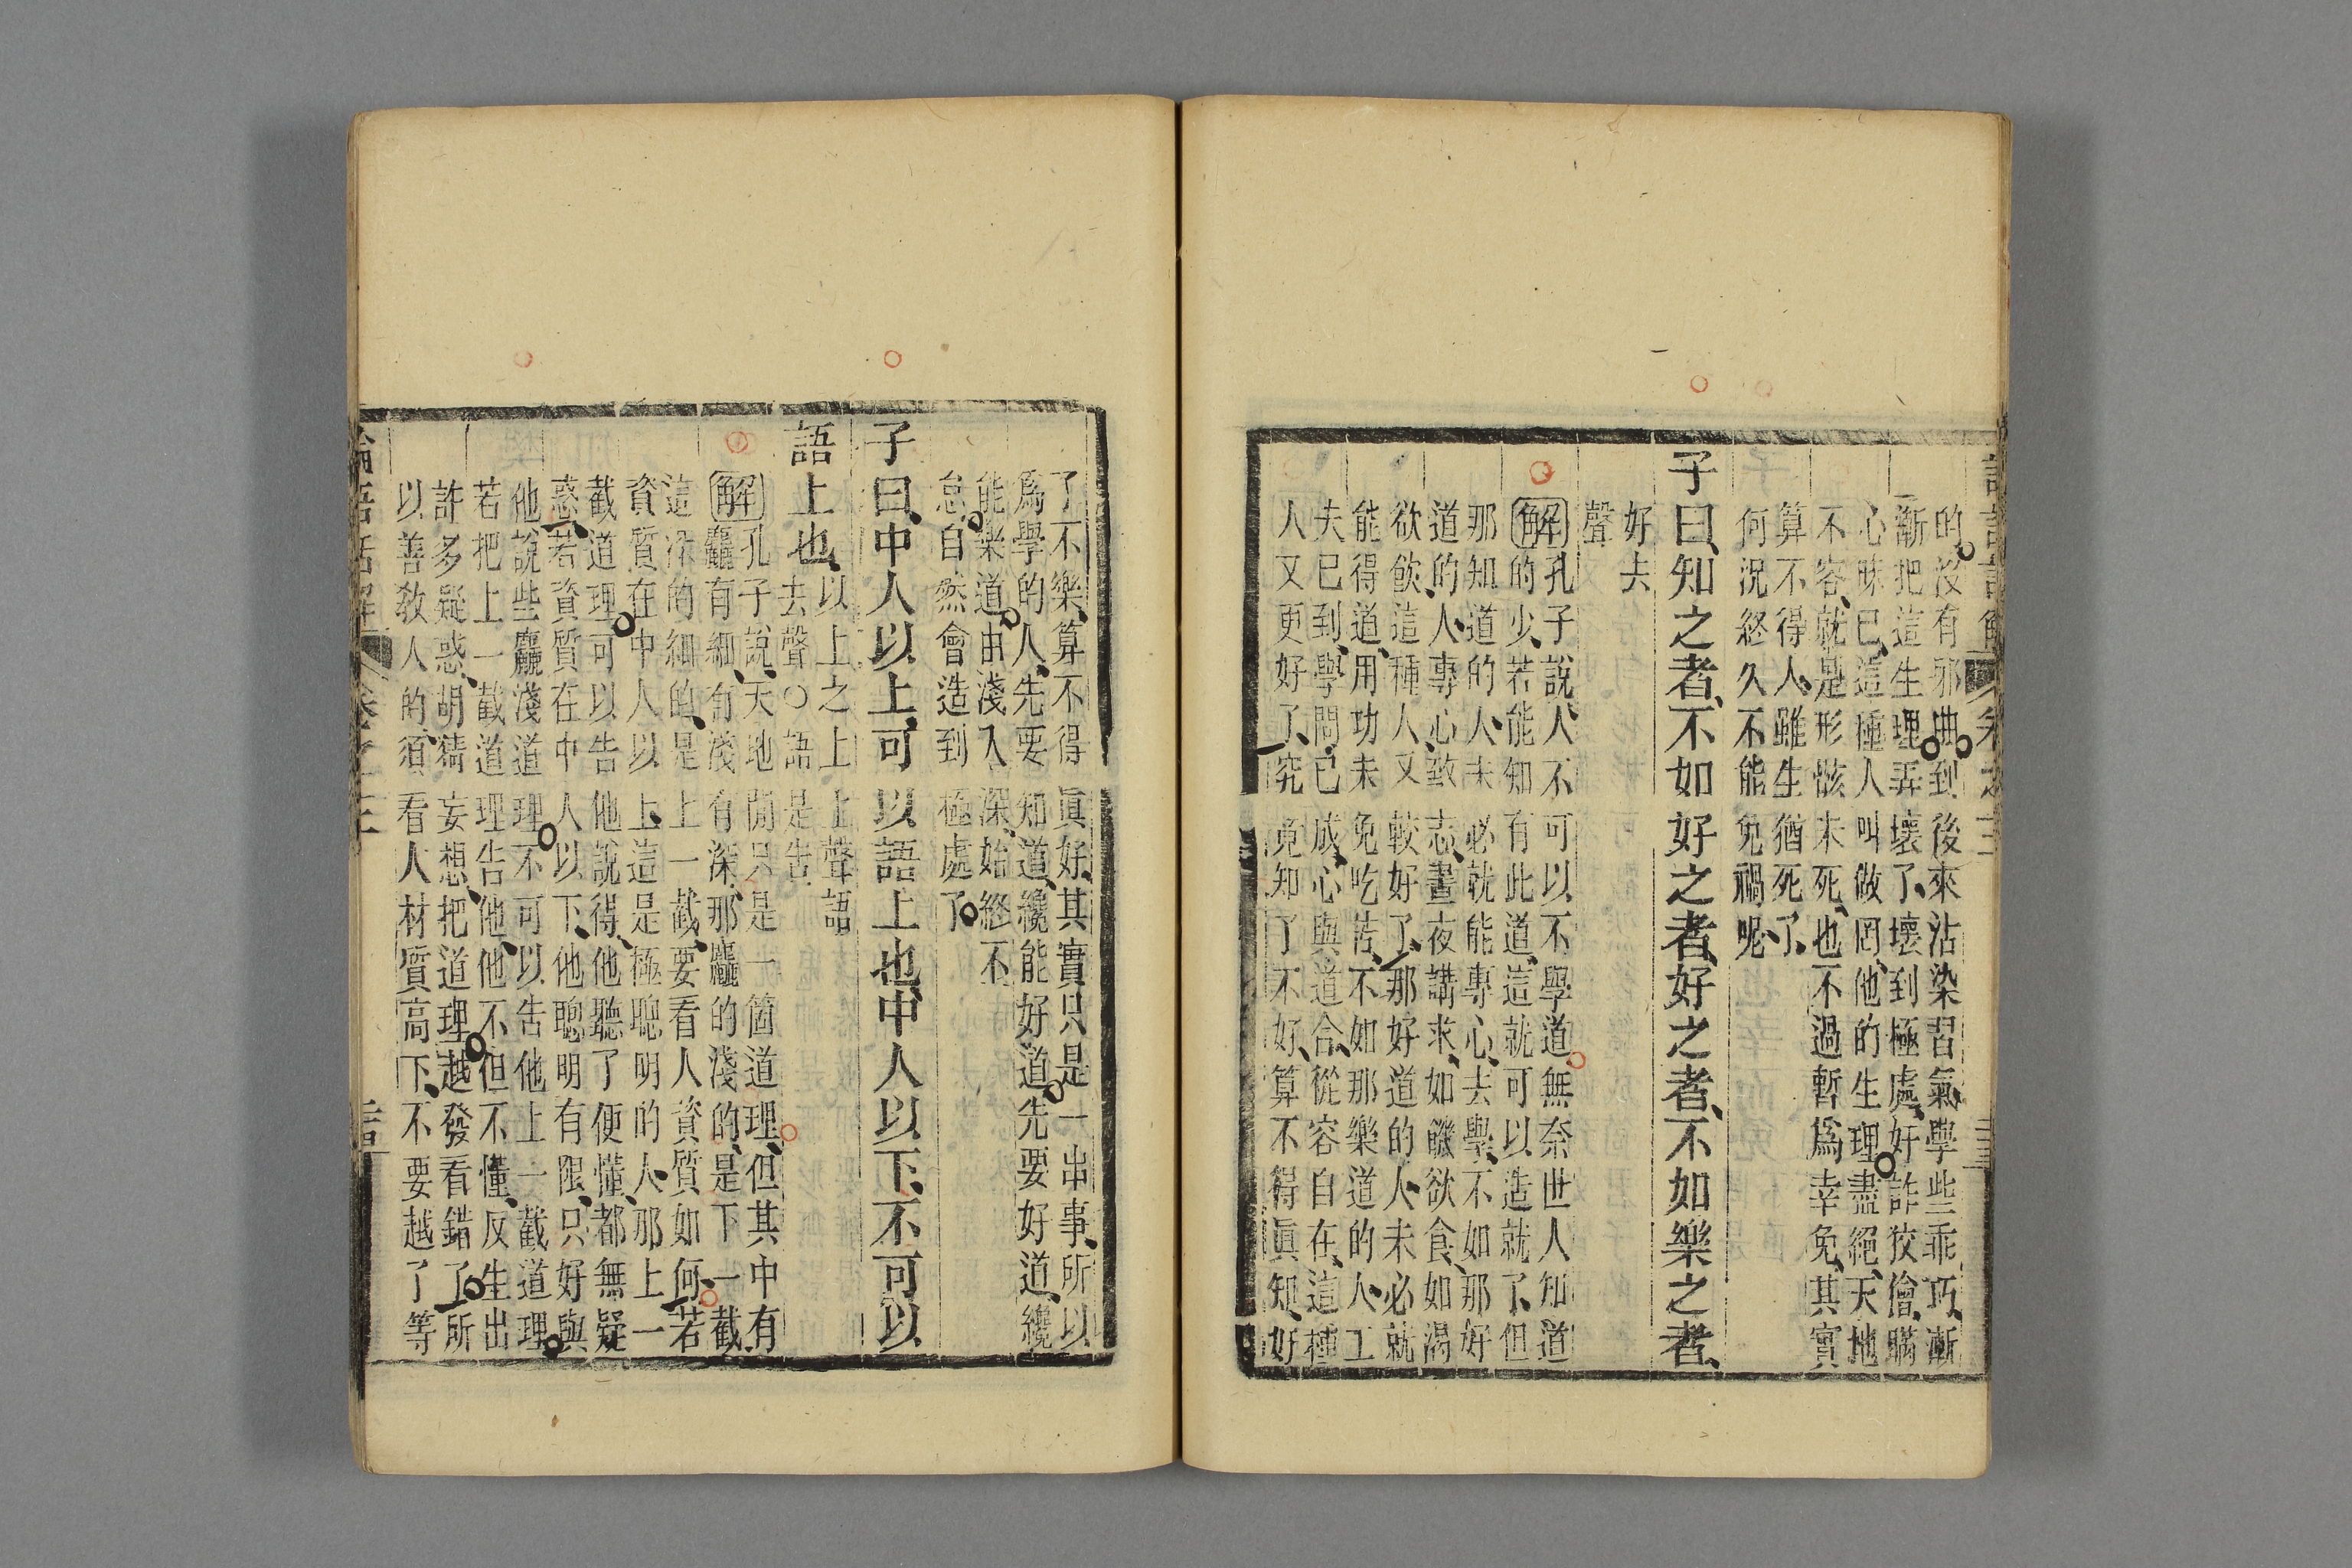 的沒有邪曲到後來沾染習氣學些乖巧漸
漸把這生理弄壞了壞到極處好詐狡儈瞞
心昧已這種人叫做罔他的生理盡絕天地
不容就是形骸未死也不過暫爲幸免其實
算不得人雖生猶死了
何況終久不能免禍呢
子曰知之者不如好之者好之者不如樂之者
好去
聲
解孔子說人不可以不學道無奈世人知道
的少若能知有此道這就可以造就了但
那知道的人未必就能專心去學不如那好
道的人專心致志晝夜講求如饑欲食如渴
欲飲這種人又較好了那好道的人未必就
能得道用功未免吃苦不如那樂道的人工
夫已到學問已成心與道合從容自在這種
人又更好了究竟知了不好算不得眞知好
了不樂算不得眞好其實只是一出事所以
爲學的人先要知道纔能好道先要好道纔
能樂道由淺入深始終不
怠自然會造到極處了
子曰中人以上可以語上也中人以下不可以
語上也以上之上上聲語
去聲○語是告
解孔子說天地閒只是一箇道理但其中有
麤有細有淺有深那麤的淺的是下一截
這深的細的是上一截要看人資質如何若
資質在中人以上這是極聰明的人那上一
截道理可以告他說得他聽了便懂都無疑
惑若資質在中人以下他聰明有限只好與
他說些麤淺道理不可以告他上一截道理
若把上一截道理告他他不但不懂反生出
許多疑惑胡猜妄想把道理越發看錯了所
以善敎人的須看人材質高下不要越了等
論語話解 卷之三